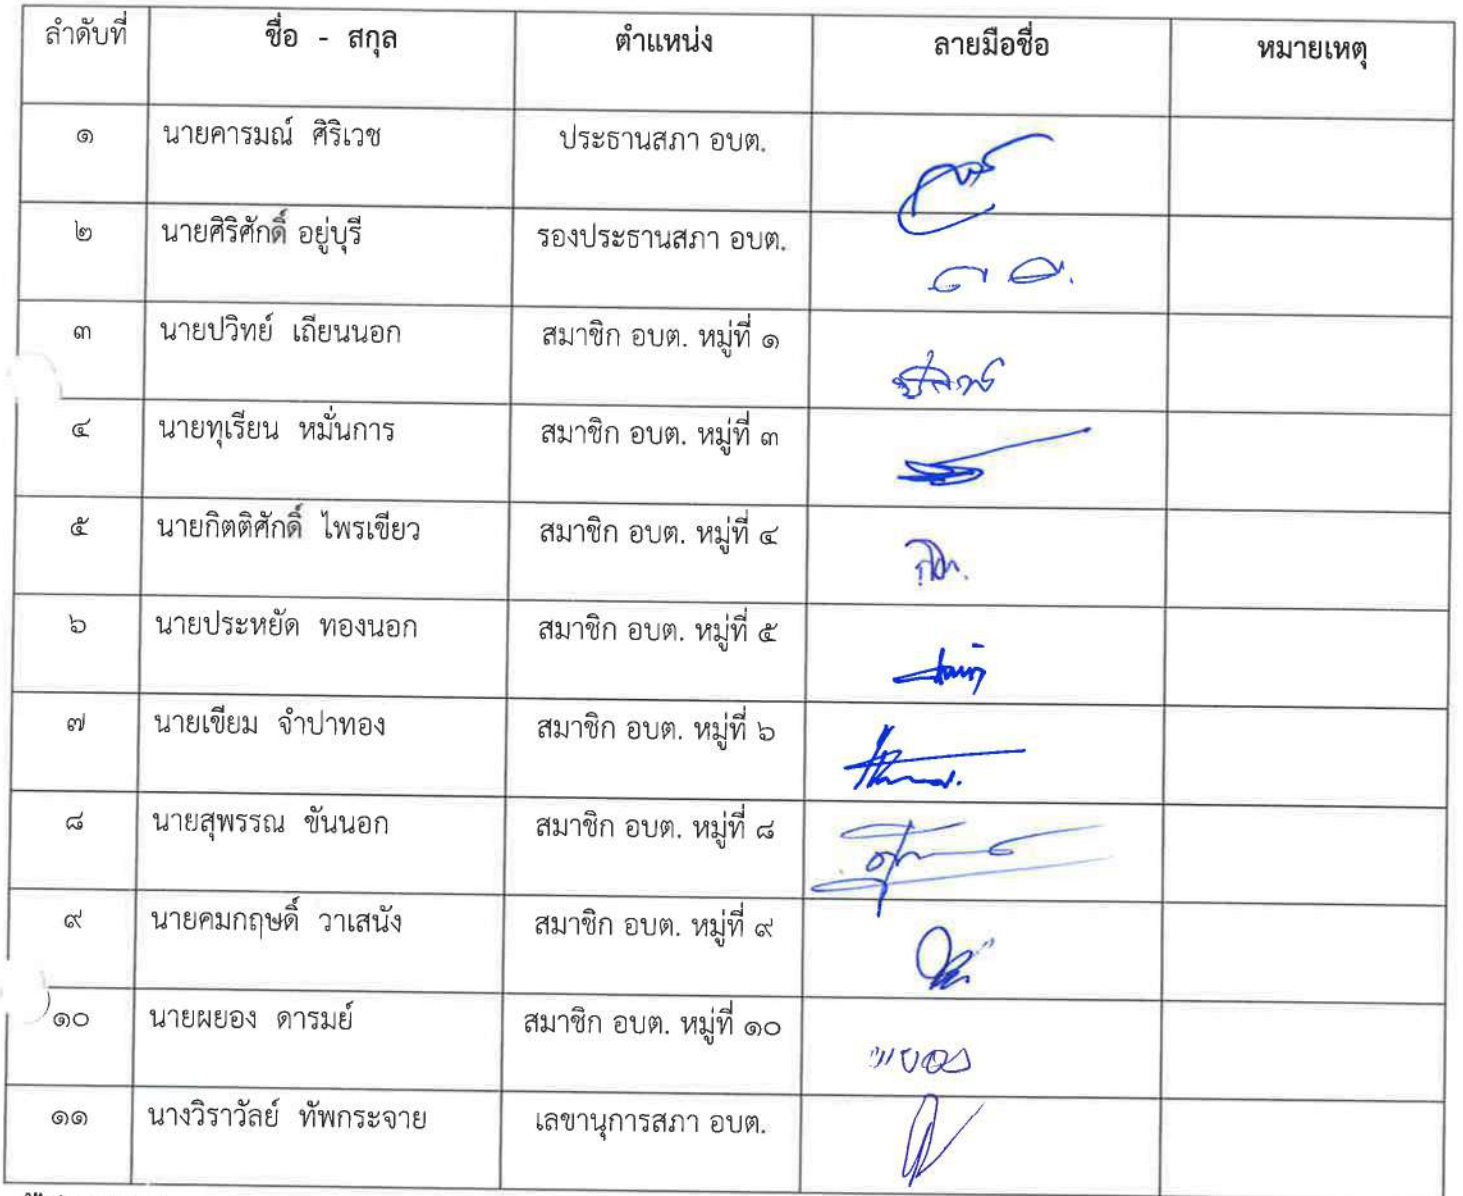 ลำดับที่ ชื่อ - สกุล ตำแหน่ง ลายมือชื่อ หมายเหตุ
๑ นายคารมณ์ ศิริเวช ประธานสภา อบต.
๒ นายศิริศักดิ์ อยู่บุรี รองประธานสภา อบต.
๓ นายปวิทย์ เถียนนอก สมาชิก อบต. หมู่ที่ ๑
๔ นายทุเรียน หมั่นการ สมาชิก อบต. หมู่ที่ ๓
๕ นายกิตติศักดิ์ ไพรเขียว สมาชิก อบต. หมู่ที่ ๔
๖ นายประหยัด ทองนอก สมาชิก อบต. หมู่ที่ ๕
๗ นายเขียม จำปาทอง สมาชิก อบต. หมู่ที่ ๖
๘ นายสุพรรณ ขันนอก สมาชิก อบต. หมู่ที่ ๘
๙ นายคมกฤษดิ์ วาเสนัง สมาชิก อบต. หมู่ที่ ๙
๑๐ นายผยอง ดารมย์ สมาชิก อบต. หมู่ที่ ๑๐ ผยอง
๑๑ นางวิราวัลย์ ทัพกระจาย เลขานุการสภา อบต.